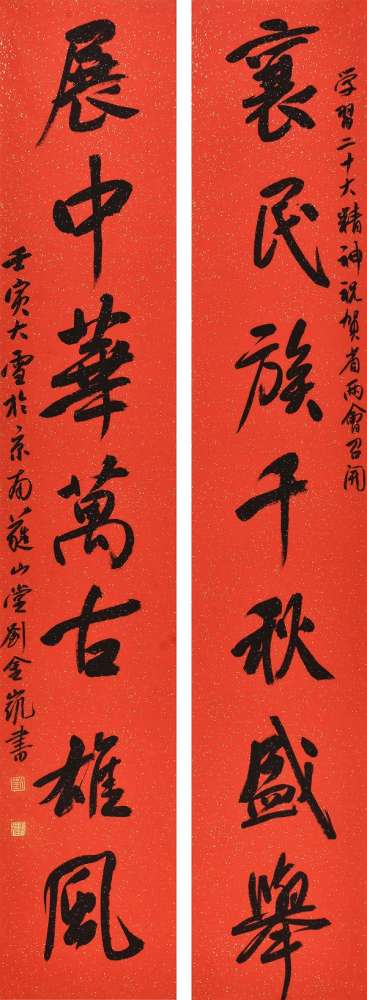 学習二十大精神祝贺省兩會召開
襄民族千秋盛舉
展中華萬古雄風
壬寅大雪於京南蘿山堂劉金凱書